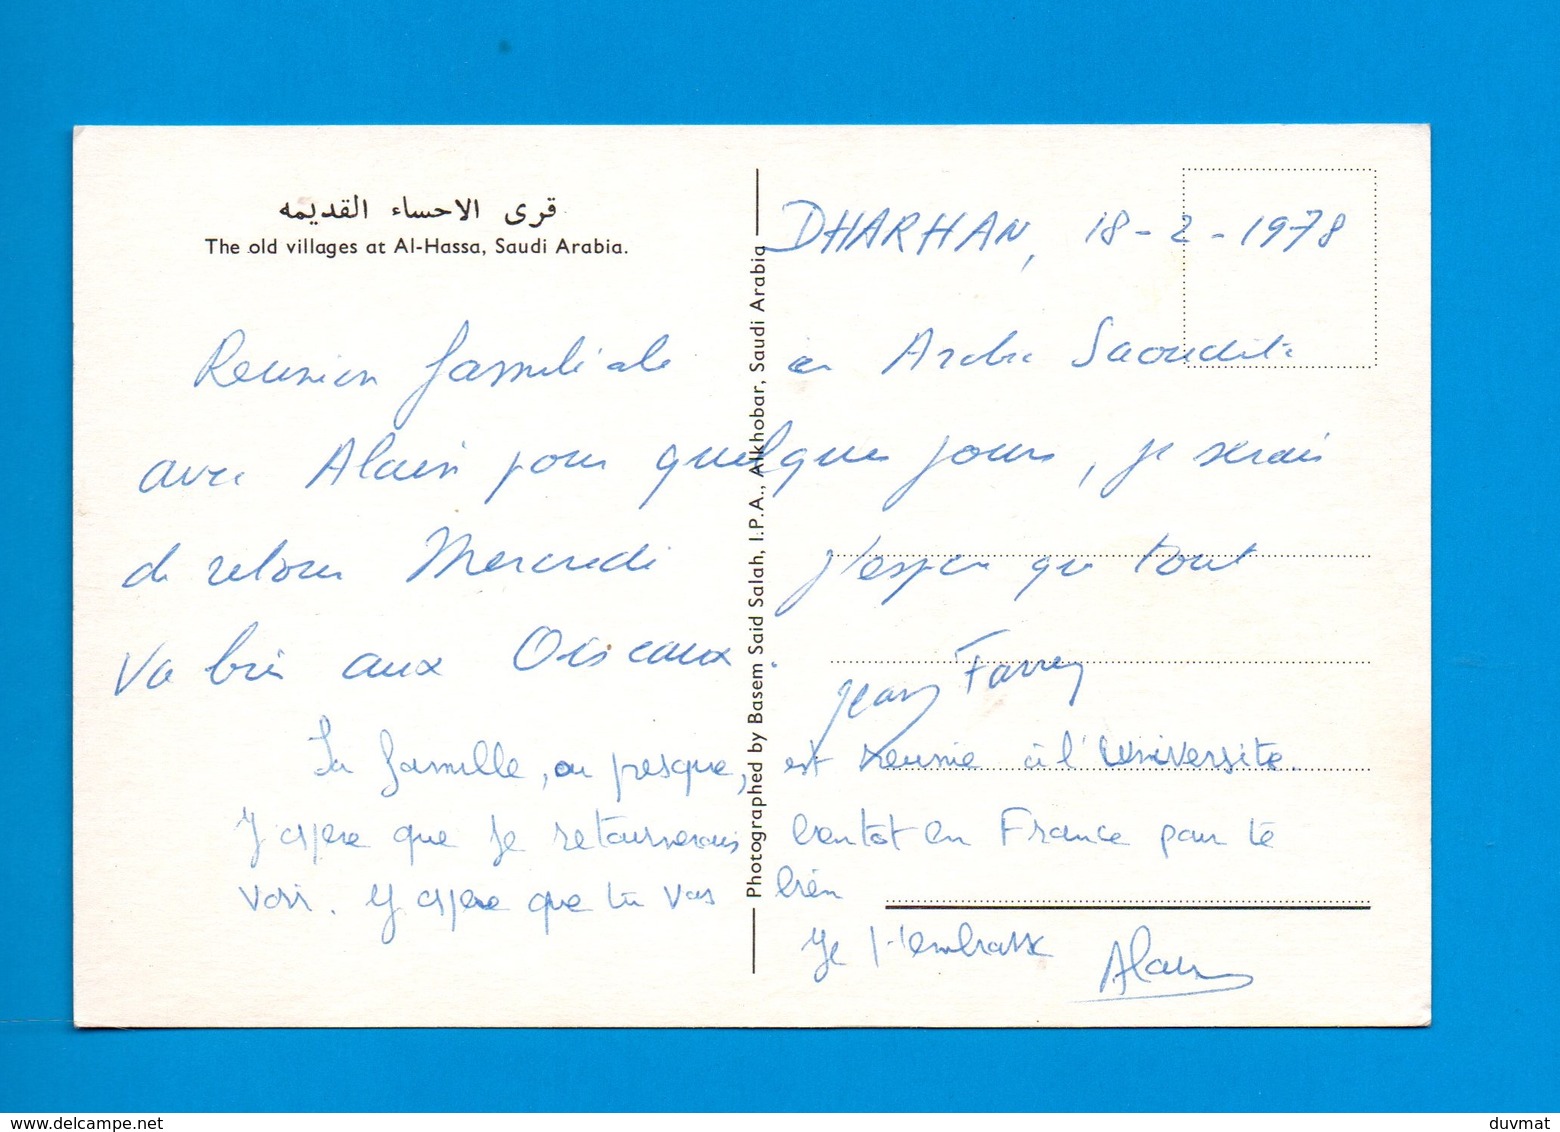 قرى الاحساء القديمه
The old villages at Al-Hassa, Saudi Arabia.
Photographed by Basem Said Salah, I.P.A., Alkhobar, Saudi Arabia
DHARHAN, 18-2-1978
Reunion familiale en Arabie Saoudite
avec Alain pour quelques jours, je serais
de retour Mercredi j'espere que tout
va bien aux Oiseaux.
Jean Farrey
La famille, ou presque, est reunie à l'Université.
J'espere que je retournerais bientot en France pour te
voir. J'espere que tu vas bien
Je t'embrasse
Alain
duvmat